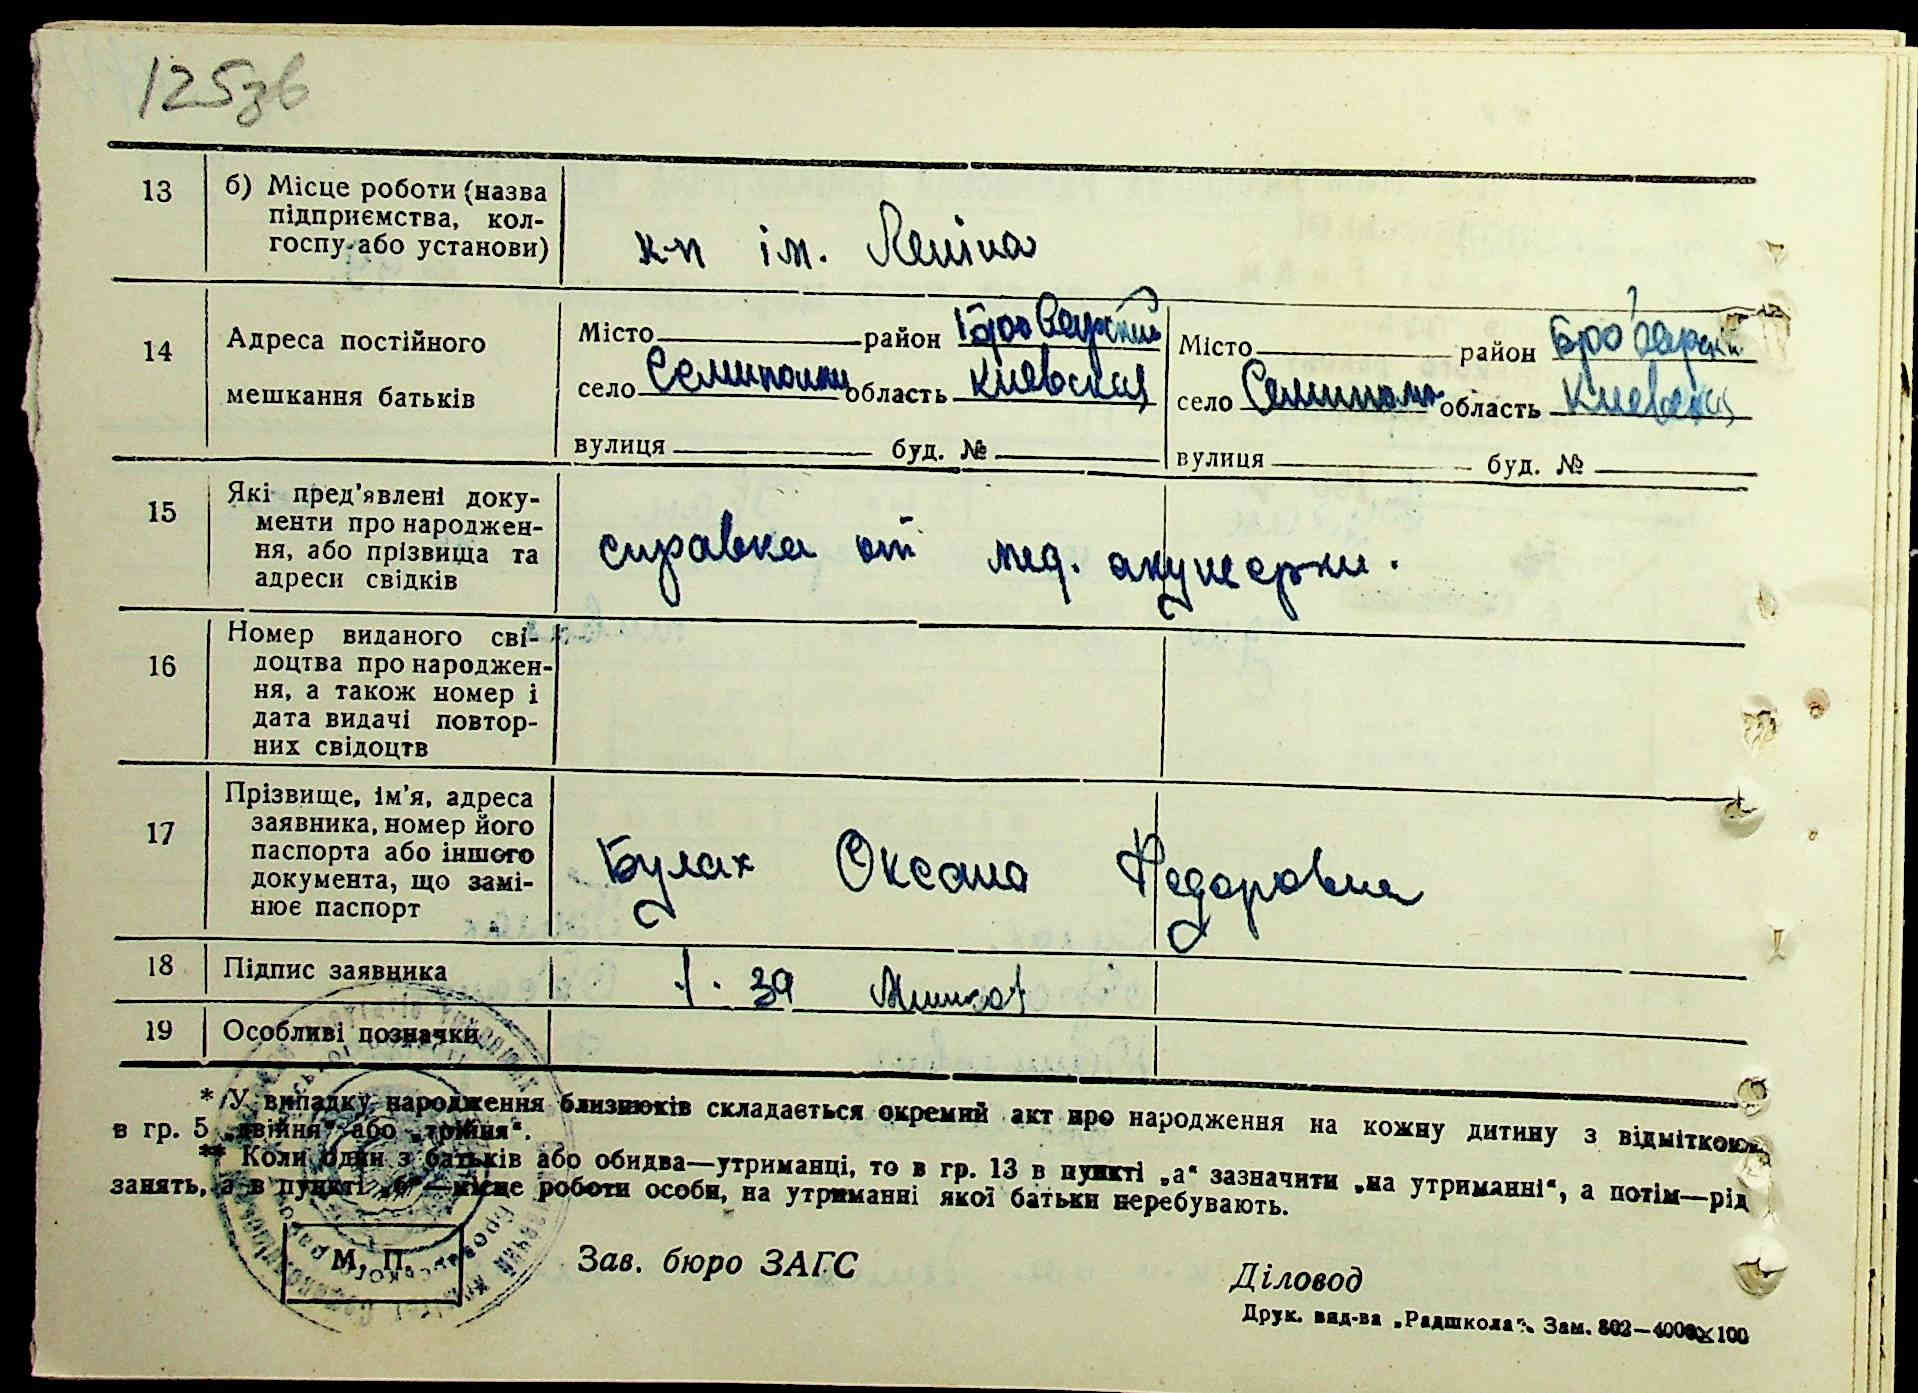 125зв
13 б) Місце роботи (назва
підприємства, кол-
госпу або установи)
к-п ім. Леніна
14 Адреса постійного
мешкання батьків
Місто район Броварский
село Семиполки область Киевская
вулиця буд. №
Місто район Броварски
село Семипол область Киевская
вулиця буд. №
15 Які пред'явлені доку-
менти про народжен-
ня, або прізвища та
адреси свідків
справка от мед. акушерки.
16 Номер виданого сві-
доцтва про народжен-
ня, а також номер і
дата видачі повтор-
них свідоцтв
17 Прізвище, ім'я, адреса
заявника, номер його
паспорта або іншого
документа, що замі-
нює паспорт
Булах Оксана Федоровна
18 Підпис заявника
за
19 Особливі позначки
* У випадку народження близнюків складається окремий акт про народження на кожну дитину з відміткою
в гр. 5 „двійня“ або „трійня“.
** Коли один з батьків або обидва—утриманці, то в гр. 13 в пункті „а“ зазначити „на утриманні“, а потім—рід
занять, а в пункті „б“—місце роботи особи, на утриманні якої батьки перебувають.
М. П.
Зав. бюро ЗАГС
Діловод
Друк. вид-ва „Радшкола“. Зам. 802—4000×100